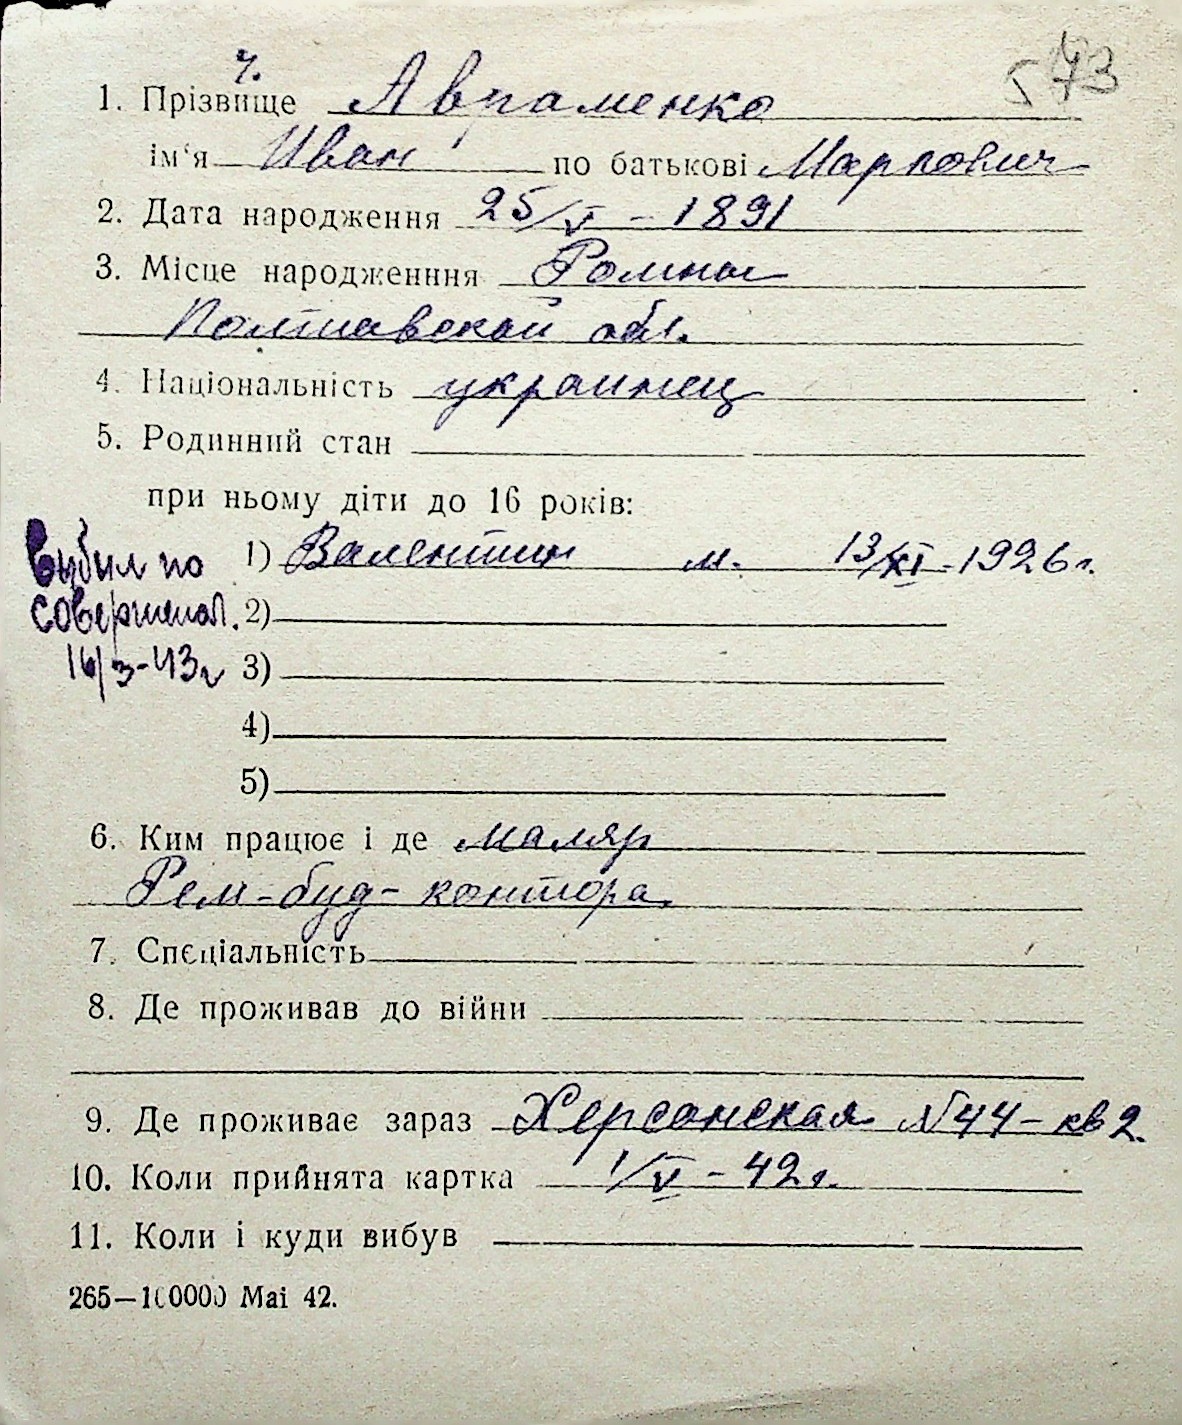 ч.
573
1. Прізвище Авраменко
ім‘я Иван по батькові Маркович
2. Дата народження 25/V – 1891
3. Місце народженння Ромны
Полтавской обл.
4. Національність украинец
5. Родинний стан
при ньому діти до 16 років:
1) Валентин м. 13/XI – 1926 г.
Выбыл по
совершенол.
16/3-43г
2)
3)
4)
5)
6. Ким працює і де маляр
Рем-буд-контора
7. Спєціальність
8. Де проживав до війни
9. Де проживає зараз Херсонская № 44 – кв 2.
10. Коли прийнята картка 1/V – 42 г.
11. Коли і куди вибув
265—100000 Mai 42.